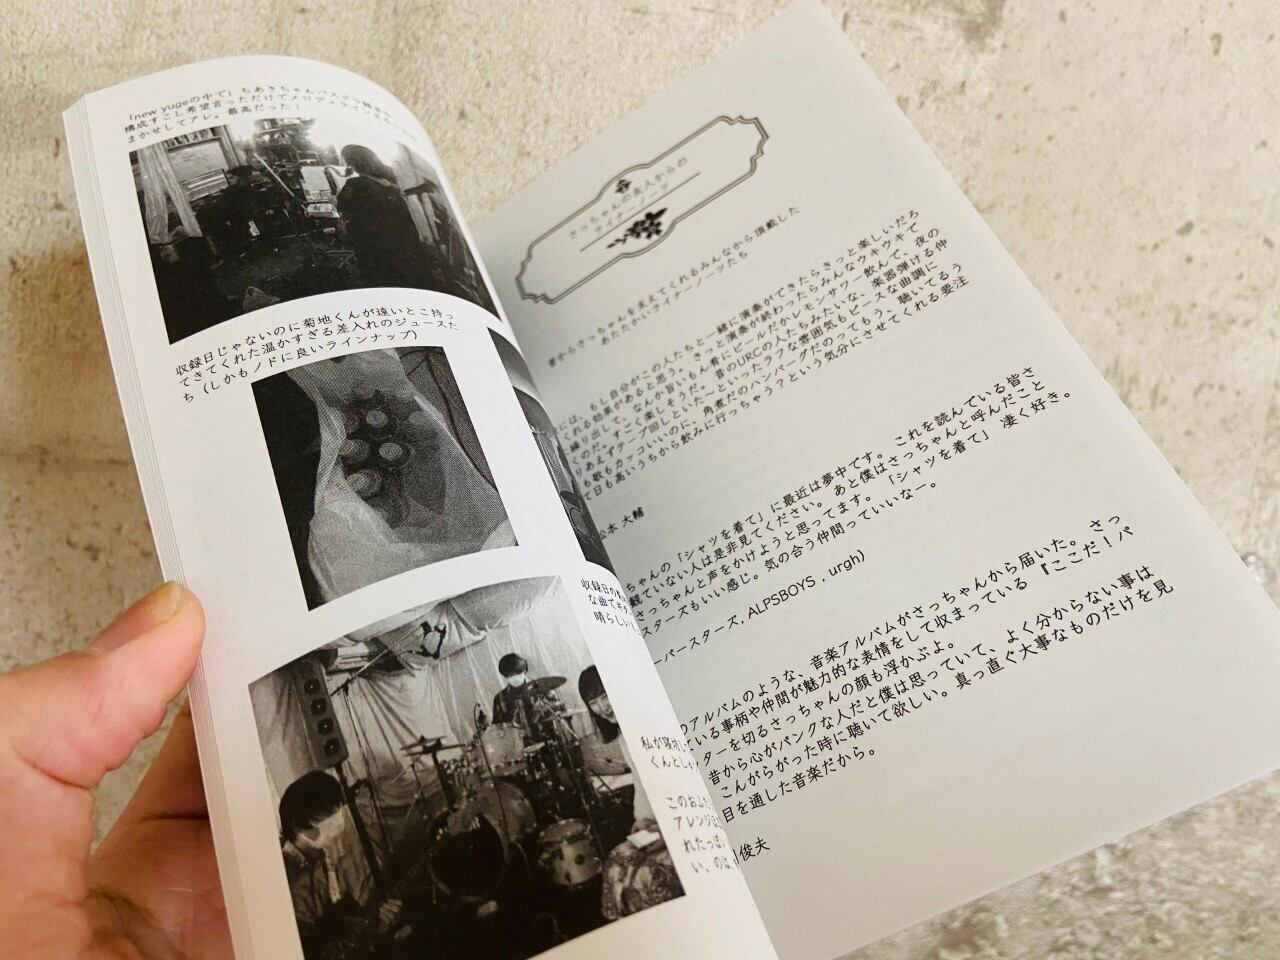 「new yugeの中で」ちあきちゃんバスクラ
構成すこし希望言っただけでメロディライン
まかせしてアレ。最高だった！
収録日じゃないのに菊地くんが遠いとこ持っ
てきてくれた温かすぎる差入れのジュースた
ち（しかもノドに良いラインナップ）
収録日の
な曲でギタ
晴らしい
私が寝坊し
くんとしゃ
このおふた
アレンジ
れたっぽい
い、のは
さっちゃんの友人からの
ライナーノーツ
昔からさっちゃんを支えてくれるみんなから頂戴した
あたたかいライナーノーツたち
には、もし自分がこの人たちと一緒に演奏ができたらきっと楽しいだろ
くれる結果があると思う。きっと演奏が終わったらみんなウキウキで
繰り出して、なんか旨いもん肴にビールだかレモンサワー飲んで、夜の
くのだ。すごく楽しそうだ。昔のURCの人たちみたいな、楽器弾ける仲
りあえずテープ回しといた～といったラフな雰囲気もピースな曲調に
も歌もカッコいいのに、角煮だのハンバーグだのってもう、聴いてるう
て日も高いうちから飲みに行っちゃう？という気分にさせてくれる要注
松本 大輔
ちゃんの「シャツを着て」に最近は夢中です。これを読んでいる皆さ
観ていない人は是非見てください。あと僕はさっちゃんと呼んだこと
さっちゃんと声をかけようと思ってます。「シャツを着て」凄く好き。
スターズもいい感じ。気の合う仲間っていいなー。
ーパースターズ, ALPSBOYS , urgh)
のアルバムのような、音楽アルバムがさっちゃんから届いた。さっ
ている事柄や仲間が魅力的な表情をして収まっている『ここだ！パ
ッターを切るさっちゃんの顔も浮かぶよ。
昔から心がパンクな人だと僕は思っていて、よく分からない事は
こんがらがった時に聴いて欲しい。真っ直ぐ大事なものだけを見
目を通した音楽だから。
川俊夫